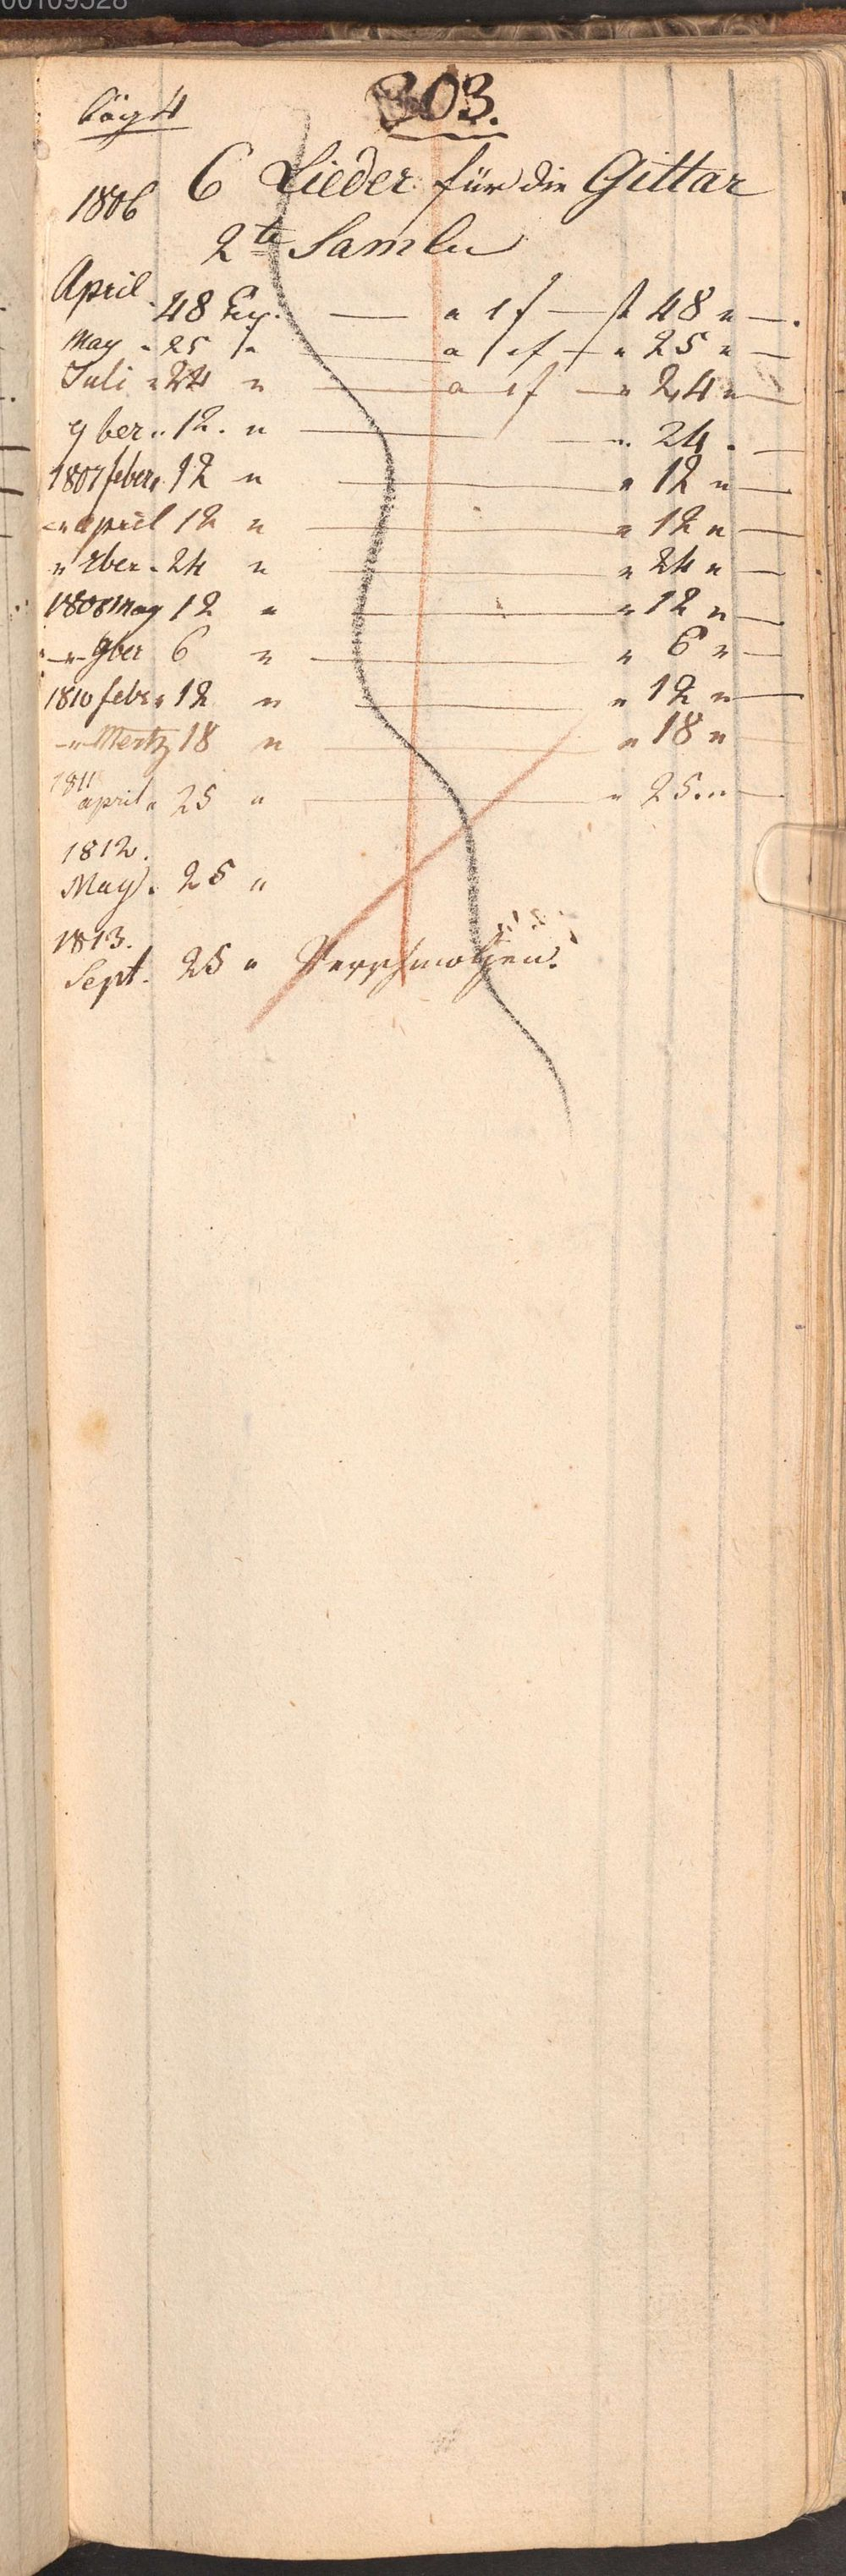 00109528
303.
1806
6 Lieder für die Gittar
2te Samlu
April 48 Ex. — a 1 f — f 48 " —.
May " 25 " — a 1 f — " 25 " —
Juli " 24 " — a 1 f — " 24 " —
9ber " 12 . " — " 24 . —
1807 feber " 12 " — " 12 " —
— " april 12 " — " 12 " —
" Xber " 24 " — " 24 " —
1808 May 12 " — " 12 " —
— " 9ber 6 " — " 6 " —
1810 febr " 12 " — " 12 " —
— " Mertz 18 " — " 18 " —
1811
april " 25 " — " 25 " —
1812.
May " 25 "
1813.
Sept. 25 " Verschmolzen.